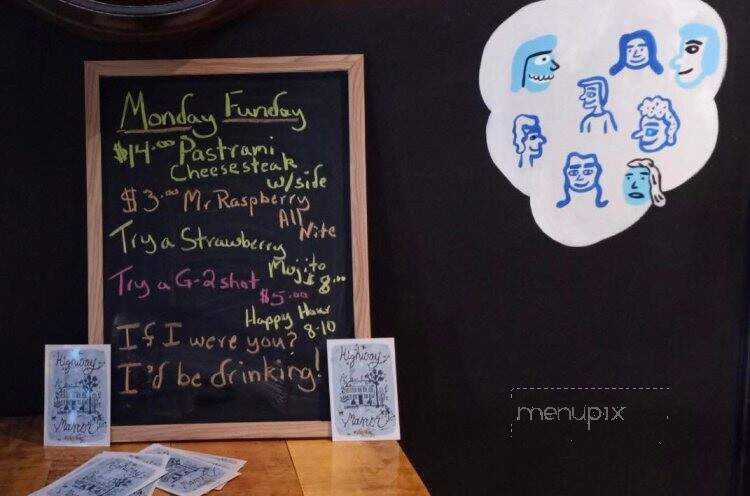 Monday Funday
$14.00 Pastrami
Cheesesteak
w/side
$3.00 Mr Raspberry
All
Nite
Try a Strawberry
Mojito
$8.00
Try a G-2 shot
$5.00
Happy Hour
8-10
If I were you?
I'd be drinking!
Highway
Manor
Highway
Manor
menupix